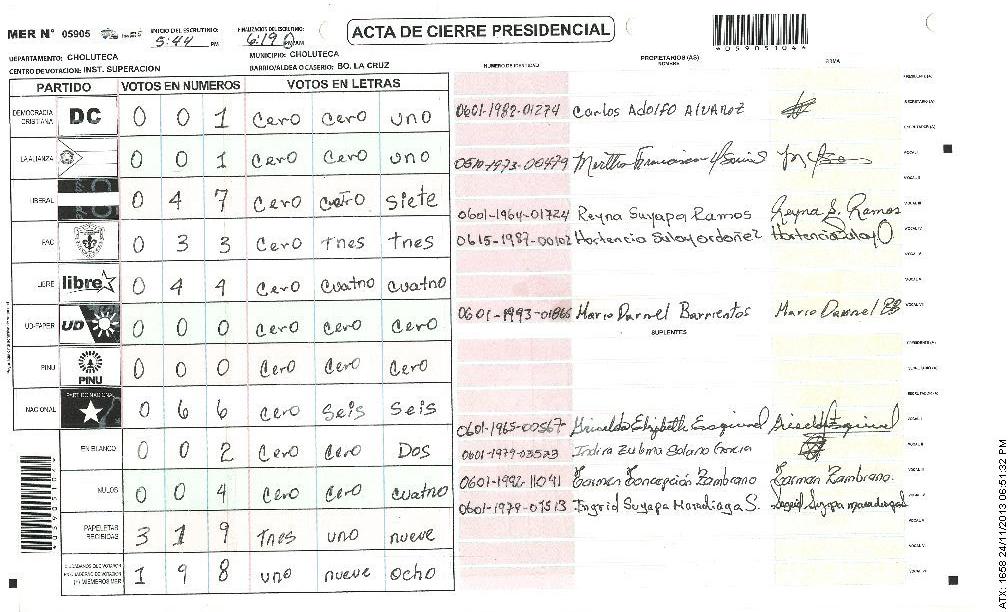 MER Nº 05905 INICIO DEL ESCRUTINIO: 5:44 PM FINALIZACION DEL ESCRUTINIO: 6:19 PM/AM
ACTA DE CIERRE PRESIDENCIAL
4059051044
DEPARTAMENTO: CHOLUTECA MUNICIPIO: CHOLUTECA
CENTRO DE VOTACION: INST. SUPERACION BARRIO/ALDEA O CASERIO: BO. LA CRUZ
PARTIDO VOTOS EN NUMEROS VOTOS EN LETRAS
NUMERO DE IDENTIDAD PROPIETARIOS (AS) NOMBRE FIRMA
DEMOCRACIA CRISTIANA DC 0 0 1 cero cero uno
LA ALIANZA 0 0 1 cero cero uno
LIBERAL 0 4 7 cero cuatro siete
PAC 0 3 3 cero tres tres
LIBRE libre 0 4 4 cero cuatro cuatro
UD-FAPER UD 0 0 0 cero cero cero
PINU PINU 0 0 0 cero cero cero
NACIONAL PARTIDO NACIONAL 0 6 6 cero seis seis
EN BLANCO 0 0 2 cero cero Dos
NULOS 0 0 4 cero cero cuatro
PAPELETAS RECIBIDAS 3 1 9 tres uno nueve
CIUDADANOS QUE VOTARON
(+) MIEMBROS MER 1 9 8 uno nueve ocho
0601-1982-01274 Carlos Adolfo Alvarez
0510-1973-00479
0601-1964-01724 Reyna Suyapa Ramos Reyna S. Ramos
0615-1987-00102 Hortencia Sulay ordoñez Hortencia Sulay O
0601-1993-01866 Mario Darnel Barrientos Mario Darnel BB
SUPLENTES
0601-1965-00567 Griselda Elizabeth Esquivel Griselda Esquivel
0601-1979-03523 Indira Zulema Solano Garcia
0601-1992-11041 Carmen Concepción Zambrano Carmen Zambrano.
0601-1979-01513 Ingrid Suyapa Maradiaga S. Ingrid Suyapa maradiaga
ATX: 1658 24/11/2013 06:51:32 PM